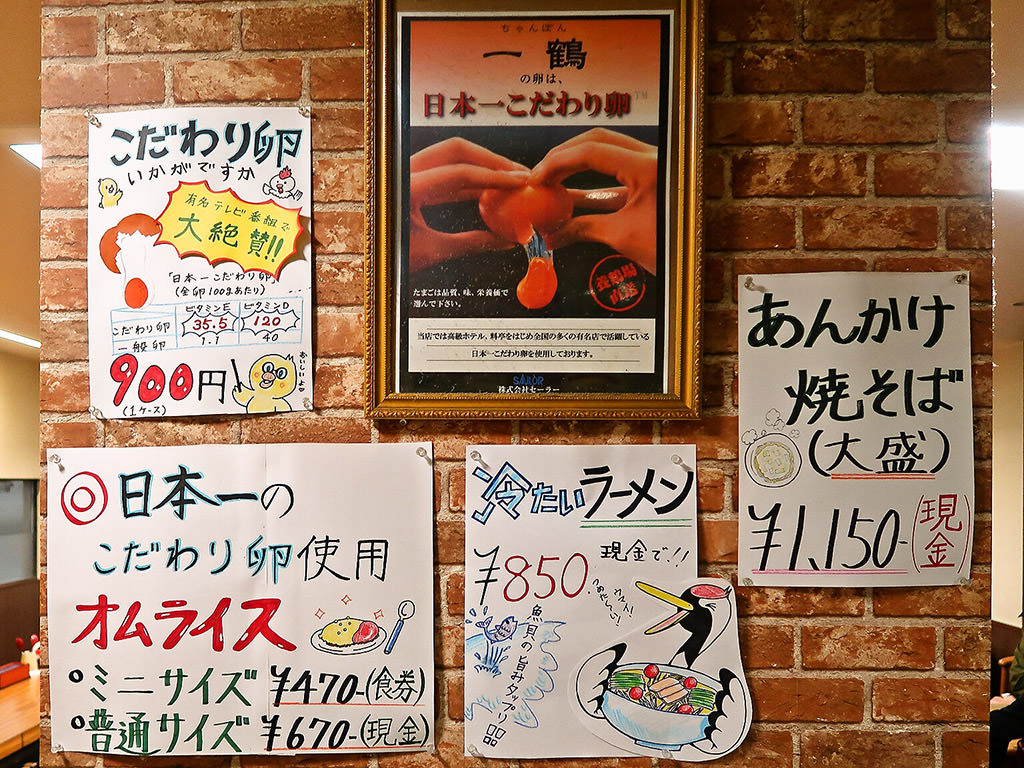 こだわり卵
いかがですか
有名テレビ番組で
大絶賛!!
「日本一こだわり卵」
(全卵100gあたり)
ビタミンE ビタミンD
こだわり卵 35.5 120
一般卵 1.1 40
900円
(1ケース)
おいしいよ
ちゃんぽん
一鶴
の卵は、
日本一こだわり卵™
養鶏場
直送
たまごは品質、味、栄養価で
選んで下さい。
当店では高級ホテル、料亭をはじめ全国の多くの有名店で活躍している
日本一こだわり卵を使用しております。
SAILOR
株式会社セーラー
あんかけ
焼そば
(大盛)
¥1,150-(現金)
◎日本一の
こだわり卵使用
オムライス
ミニサイズ ¥470-(食券)
普通サイズ ¥670-(現金)
冷たいラーメン
¥850 現金で!!
魚貝の旨みタップリ